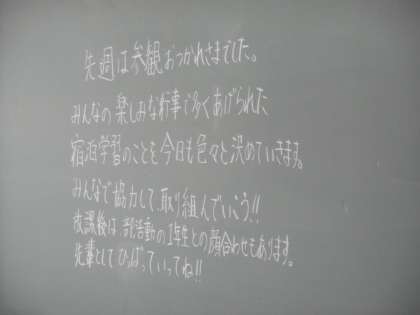 先週は参観おつかれさまでした。
みんなの楽しみな行事で多くあげられた
宿泊学習のことを今日も色々と決めていきます。
みんなで協力して取り組んでいこう!!
放課後は部活動の1年生との顔合わせもあります。
先輩としてひっぱっていってね!!